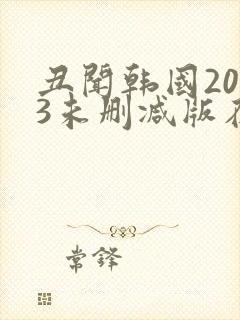 丑闻韩国20
3未删减版
常铎